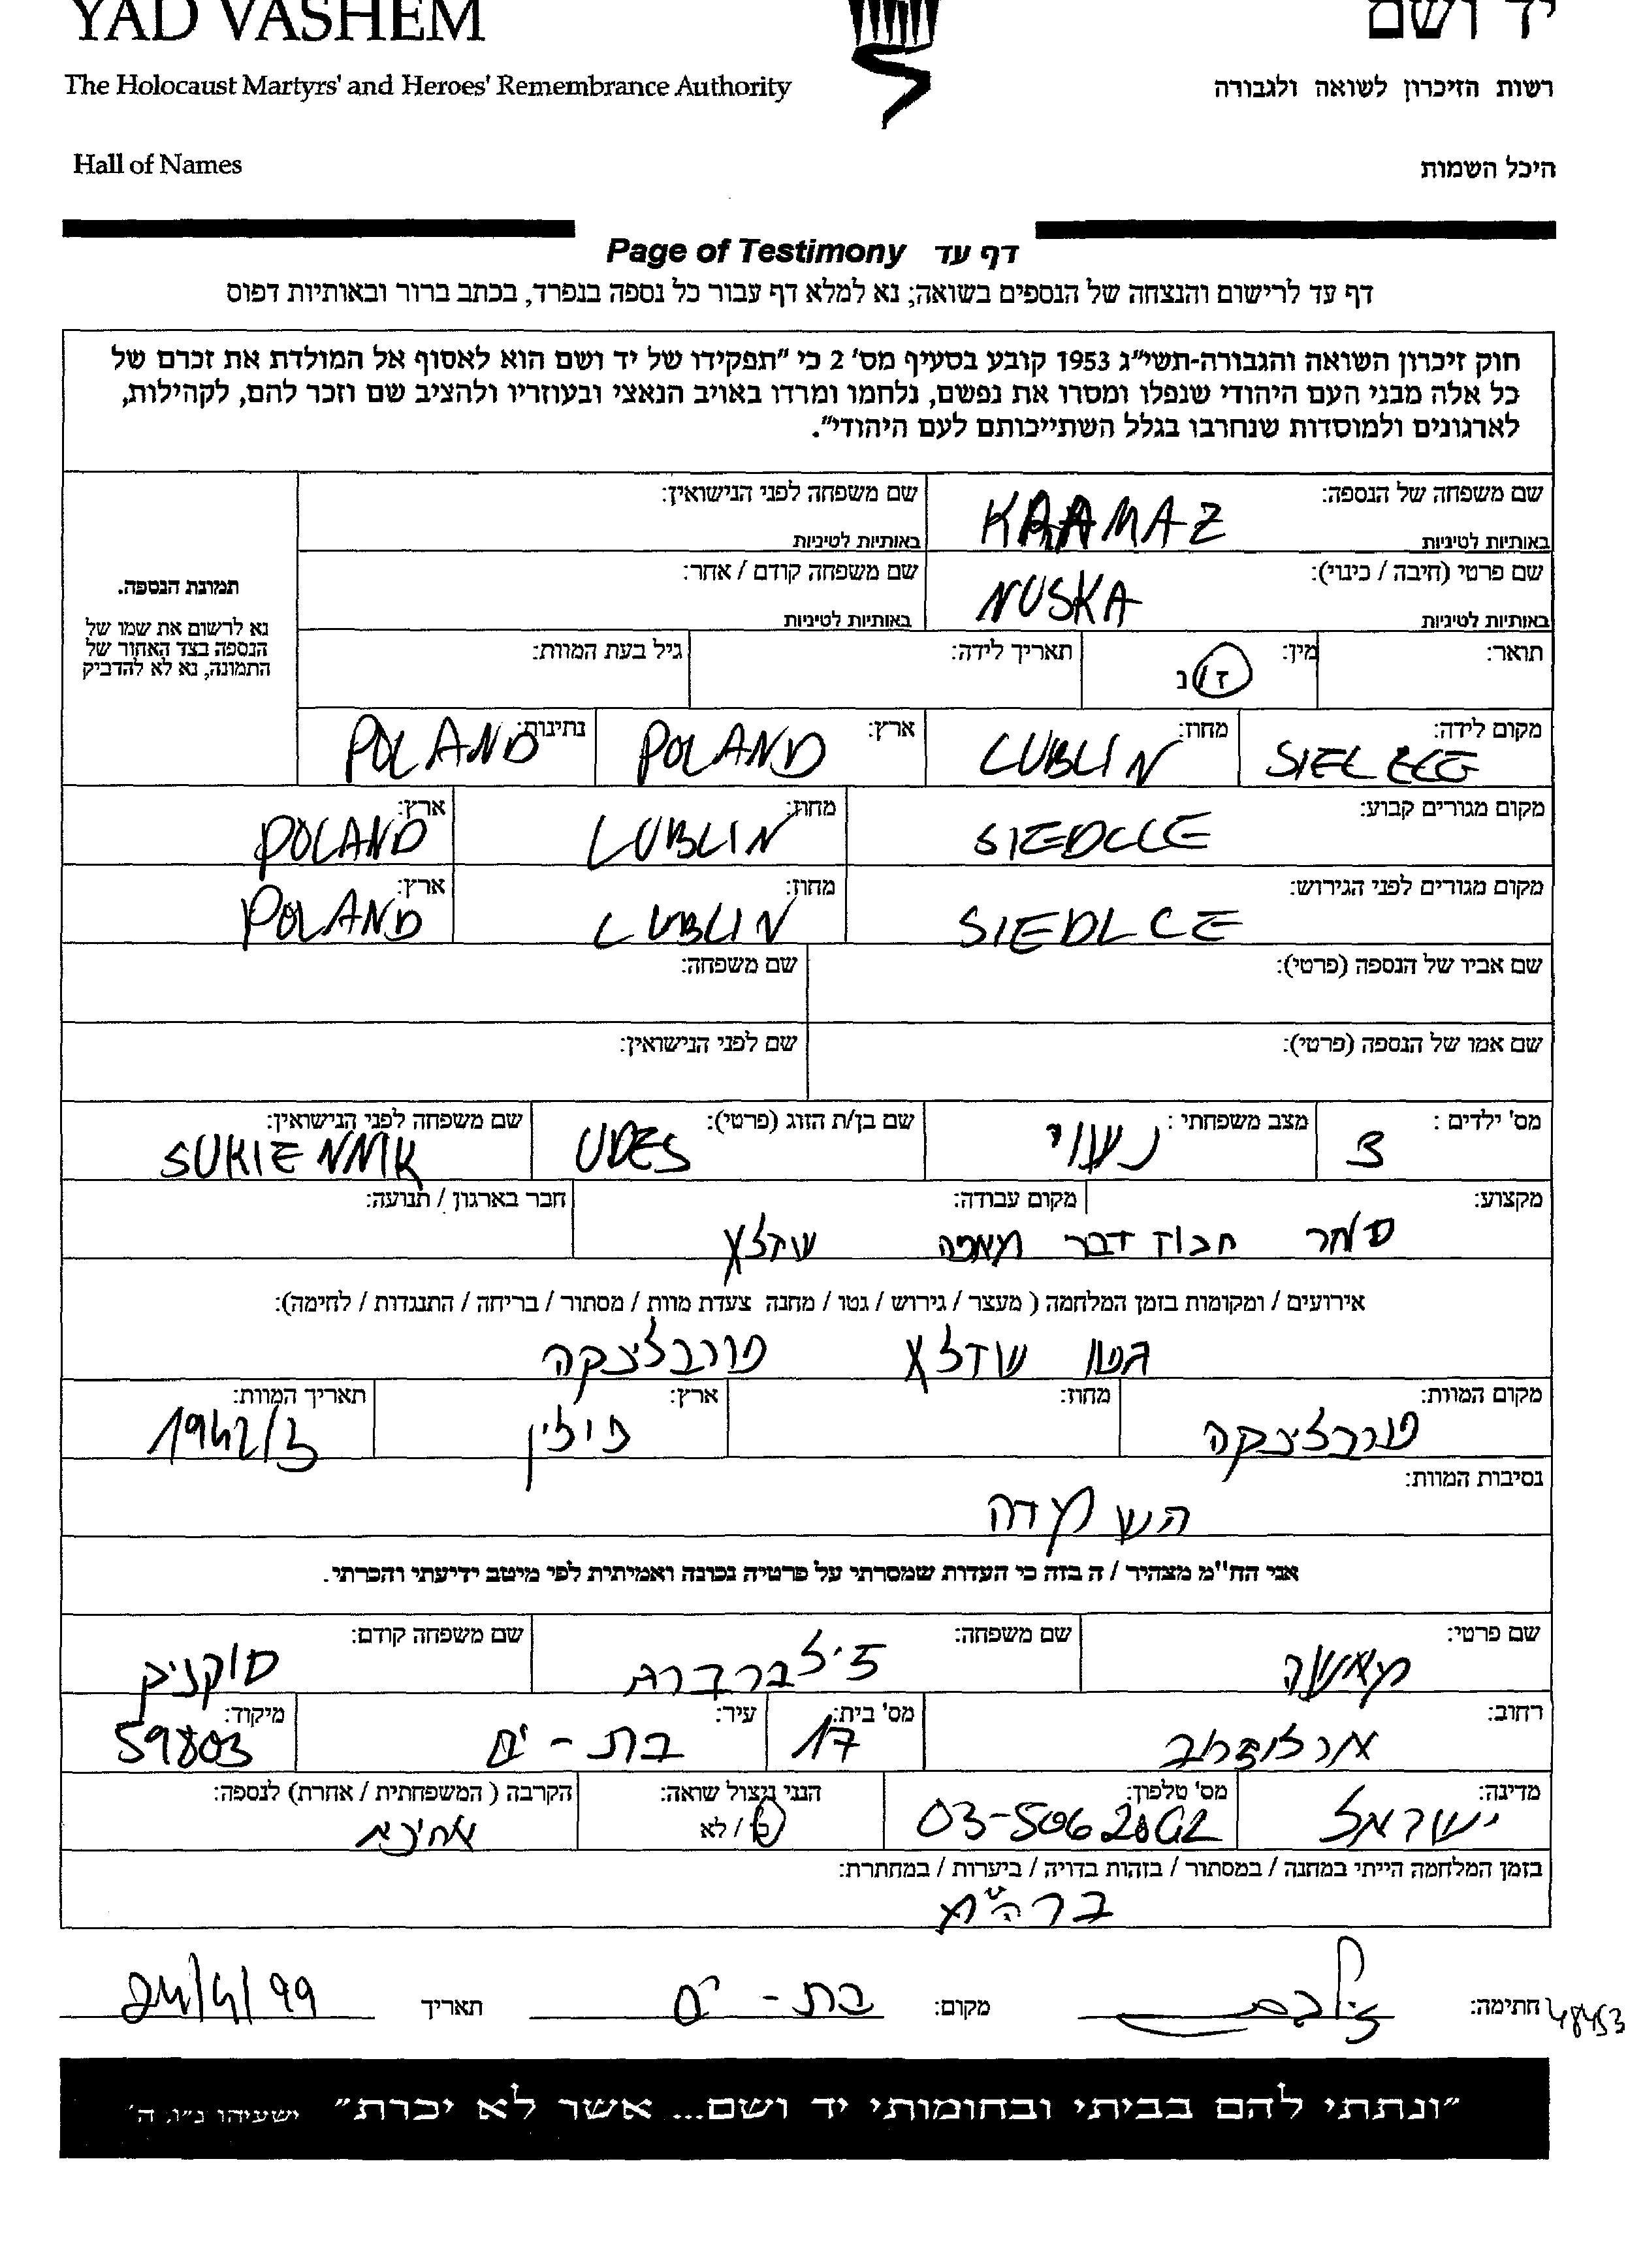 YAD VASHEM
יד ושם
The Holocaust Martyrs' and Heroes' Remembrance Authority
רשות הזיכרון לשואה ולגבורה
Hall of Names
היכל השמות
Page of Testimony דף עד
דף עד לרישום והנצחה של הנספים בשואה; נא למלא דף עבור כל נספה בנפרד, בכתב ברור ובאותיות דפוס
חוק זיכרון השואה והגבורה-תשי"ג 1953 קובע בסעיף מס' 2 כי "תפקידו של יד ושם הוא לאסוף אל המולדת את זכרם של
כל אלה מבני העם היהודי שנפלו ומסרו את נפשם, נלחמו ומרדו באויב הנאצי ובעוזריו ולהציב שם וזכר להם, לקהילות,
לארגונים ולמוסדות שנחרבו בגלל השתייכותם לעם היהודי".
שם משפחה של הנספה: KRAMAZ שם משפחה לפני הנישואין:
באותיות לטיניות באותיות לטיניות
שם פרטי (חיבה / כינוי): NUSKA שם משפחה קודם / אחר:
באותיות לטיניות באותיות לטיניות
תמונת הנספה.
נא לרשום את שמו של
הנספה בצד האחור של
התמונה, נא לא להדביק
תואר: מין: ז / נ תאריך לידה: גיל בעת המוות:
מקום לידה: מחוז: LUBLIN ארץ: POLAND נתינות: POLAND
מקום מגורים קבוע: SIEDLCE מחוז: LUBLIN ארץ: POLAND
מקום מגורים לפני הגירוש: SIEDLCE מחוז: LUBLIN ארץ: POLAND
שם אביו של הנספה (פרטי): שם משפחה:
שם אמו של הנספה (פרטי): שם לפני הנישואין:
מס' ילדים : 3 מצב משפחתי : נשוי שם בן/ת הזוג (פרטי): UDES שם משפחה לפני הנישואין:
מקצוע: סוחר מקום עבודה: שדלץ חבר בארגון / תנועה:
אירועים / ומקומות בזמן המלחמה ( מעצר / גירוש / גטו / מחנה צעדת מוות / מסתור / בריחה / התנגדות / לחימה):
גטו שדלץ טרבלינקה
מקום המוות: טרבלינקה מחוז: ארץ: פולין תאריך המוות:
נסיבות המוות:
השמדה
אני הח"מ מצהיר / ה בזה כי העדות שמסרתי על פרטיה נכונה ואמיתית לפי מיטב ידיעתי והכרתי.
שם פרטי: מאשה שם משפחה: זילברברג שם משפחה קודם: סוקניק
רחוב: ארלוזורוב מס' בית: 17 עיר: בת - ים מיקוד: 59803
מדינה: ישראל מס' טלפון: הנני ניצול שואה: כן / לא הקרבה ( המשפחתית / אחרת) לנספה: אחינית
בזמן המלחמה הייתי במחנה / במסתור / בזהות בדויה / ביערות / במחתרת:
חתימה: מקום: בת - ים תאריך 24/4/99
48453
"ונתתי להם בביתי ובחומותי יד ושם... אשר לא יכרת" ישעיהו נ"ו, ה'